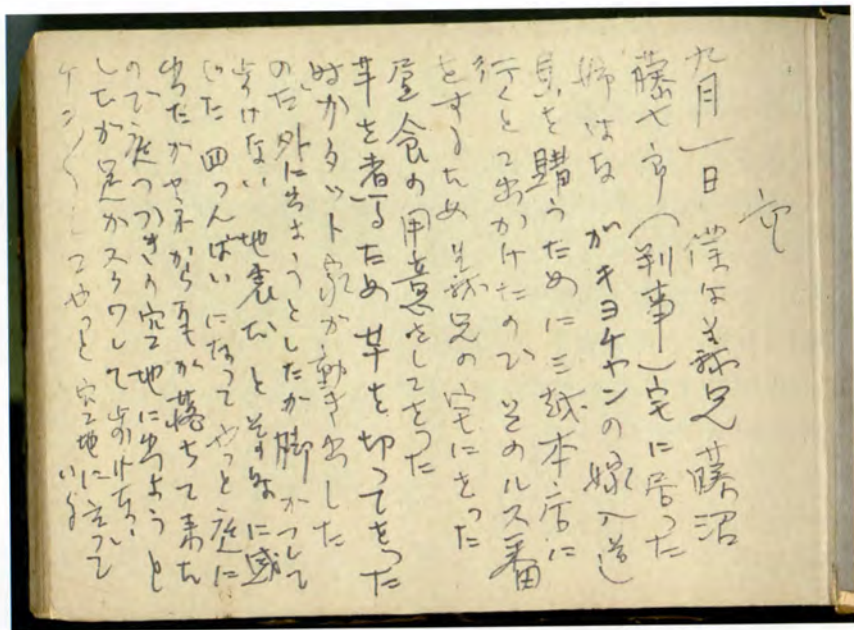 九月一日 僕は義兄藤沼
藤七郎(判事)宅に居った
姉はな がキヨチャンの嫁入道
具を購うために三越本店に
行くとて出かけたので そのルス番
をするため義兄の宅にをった
昼食の用意をしてをった
芋を煮るため 芋を切ってをった
時 ガタット家が動き出した
ので 外に出ようとしたが脚 して
歩けない 地震だとその時に感
じた 四つんばいになってやっと庭に
出たがヤネから瓦が落ちて来た
ので庭つづきの空地に出ようと
したが足がスクワレて歩けない
してやっと空地に